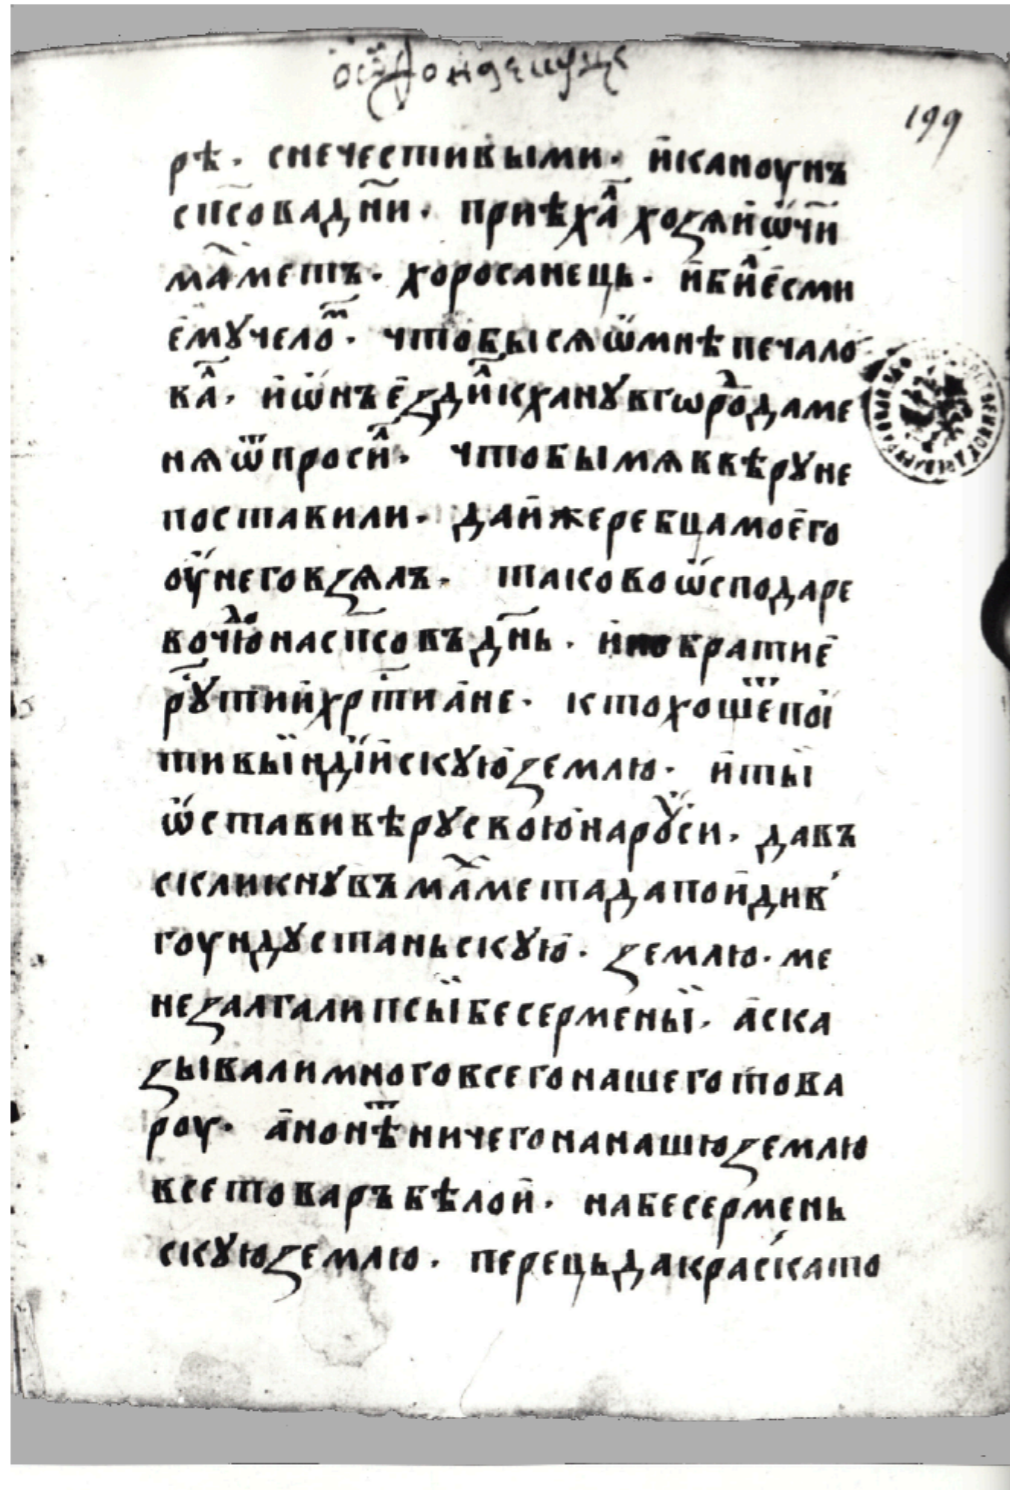 199
рѣ · снечестивыми · и҆канѹнъ
сп҃совадн҃и · приѣхаⷧ҇ хоꙁѧи҆ѡ҆чи
маⷯметъ · хоросанець · и҆би҆ⷧе҆сми
е҆мꙋчелоⷨ · чтобысѧѡ҆мнѣпечало
ваⷧ҇ · и҆ѡ҆нъе҆ꙁдиⷧ҇кханꙋвгѡроⷣдаме
нѧѿпросиⷧ҇ · чтобымѧввѣрꙋне
поставили · даи҆жеребцамоего
ѹ҆неговꙁѧлъ · таковоѡ҆сподаре
вочюⷣⷪнаспⷭ҇овъдн҃ь · и҆нобратие
рꙋⷭ҇тии҆хрⷭ҇тиа҆не · ктохощеⷮпоі
тивыїндїискꙋюꙁемлю · и҆ты
ѡ҆ставивѣрꙋскою҆нарѹси · давъ
скликнꙋвъмаⷯметадапоидив
гѹндꙋстаньскꙋю · ꙁемлю · ме
неꙁалгалипсыїбесермены · а҆ска
ꙁывалимноговсегонашеготова
рѹ · а҆нонѣⷮничегонанашюꙁемлю
всетоваръбѣлои · набесермень
скꙋюꙁемлю · перецьдакраскато